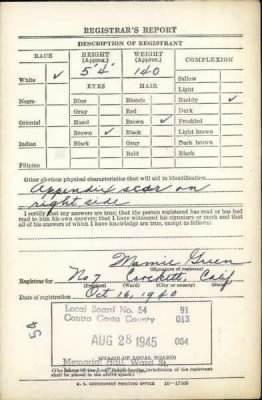 REGISTRAR'S REPORT
DESCRIPTION OF REGISTRANT
RACE HEIGHT (Approx.) WEIGHT (Approx.) COMPLEXION
White ✓ 5'4" 140 Sallow
EYES HAIR Light
Negro Blue Blonde Ruddy ✓
Gray Red Dark
Oriental Hazel Brown ✓ Freckled
Brown ✓ Black Light brown
Indian Black Gray Dark brown
Bald Black
Filipino
Other obvious physical characteristics that will aid in identification
Appendix scar on
right side
I certify that my answers are true; that the person registered has read or has had read to him his own answers; that I have witnessed his signature or mark and that all of his answers of which I have knowledge are true, except as follows:
Mamie Green
(Signature of registrar)
Registrar for No 7 Crockett, Calif
(Precinct) (Ward) (City or county) (State)
Date of registration Oct 16, 1940
54
Local Board No. 54 91
Contra Costa County 013
AUG 28 1945 054
Memorial Hall, Ward St.
(STAMP OF LOCAL BOARD)
U. S. GOVERNMENT PRINTING OFFICE 16-17105